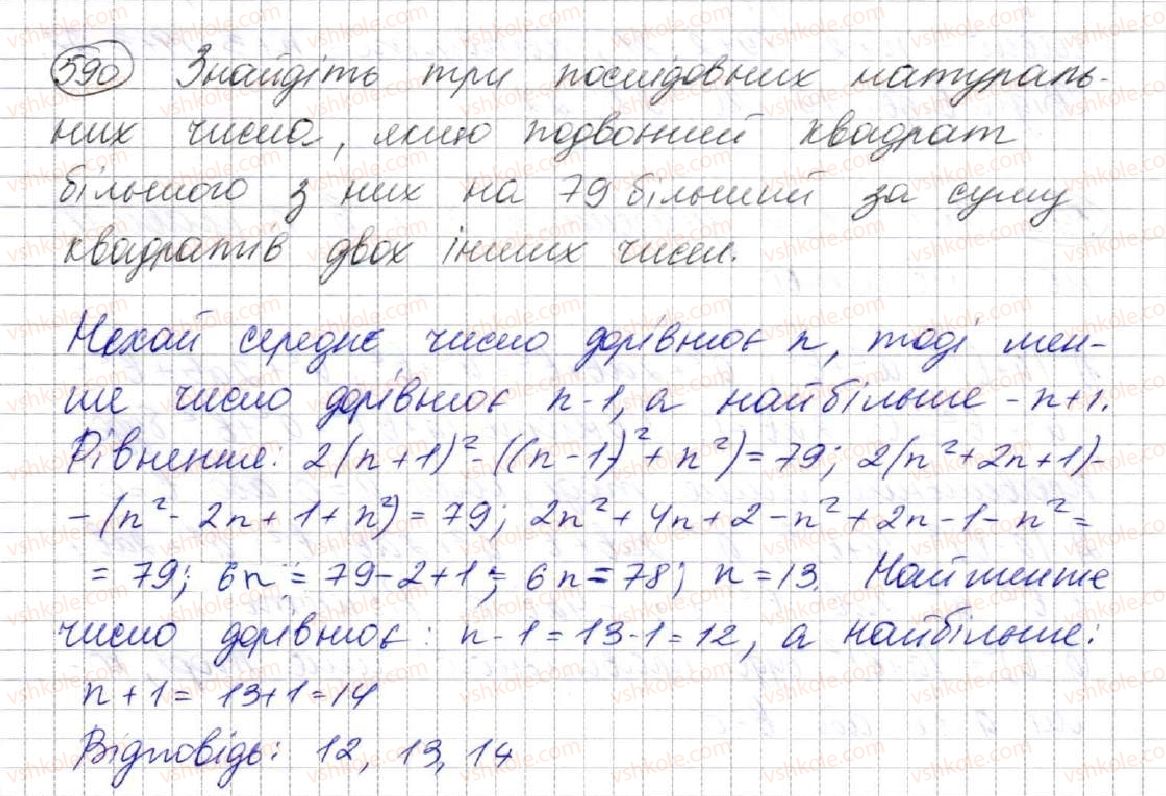 590 Знайдіть три послідовних натураль-
них числа, якщо подвоєний квадрат
більшого з них на 79 більший за суму
квадратів двох інших чисел.
Нехай середнє число дорівнює n, тоді мен-
ше число дорівнює n-1, а найбільше - n+1.
Рівнення: 2(n+1)²-((n-1)²+n²)=79; 2(n²+2n+1)-
-(n²-2n+1+n²)=79; 2n²+4n+2-n²+2n-1-n²=
=79; 6n=79-2+1; 6n=78; n=13. Найменше
число дорівнює: n-1=13-1=12, а найбільше:
n+1=13+1=14
Відповідь: 12, 13, 14